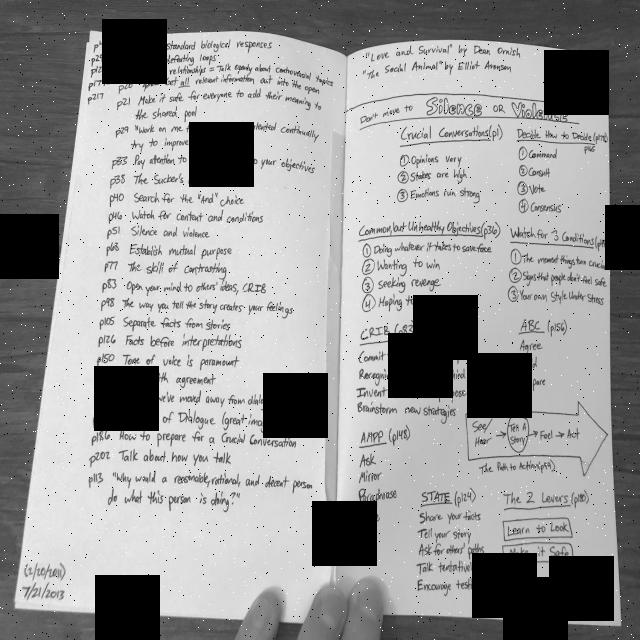 standard biological responses
defeating loops
relationships = Talk openly about controversial topics
get all relevant information out into the open
p217
p21 Make it safe for everyone to add their meaning to
the shared pool
p29 "Work on me continually
try to improve
p33 Pay attention to your objectives
p38 The Sucker's
p40 Search for the "And" choice
p46 Watch for content and conditions
p51 Silence and violence
p68 Establish mutual purpose
p77 The skill of contrasting
p83 Open your mind to others' ideas, CRIB
p98 The way you tell the story creates your feelings
p105 Separate facts from stories
p126 Facts before interpretations
p150 Tone of voice is paramount
with agreement
we've moved away from
of Dialogue (great
p186 How to prepare for a Crucial Conversation
p202 Talk about how you talk
p113 "Why would a reasonable, rational, and decent person
do what this person is doing?"
(2/20/2011)
7/21/2013
"Love and Survival" by Dean Ornish
"The Social Animal" by Elliot Aronson
Don't move to Silence OR Violence
Crucial Conversations (p1)
① Opinions vary
② Stakes are high
③ Emotions run strong
Decide How to Decide
① Command
② Consult
③ Vote
④ Consensus
Common, but Unhealthy Objectives (p36)
① Doing whatever it takes to save face
② Wanting to win
③ Seeking revenge
④ Hoping
Watch for 3 Conditions
① The moment things turn crucial
② Signs that people don't feel safe
③ Your own Style Under Stress
CRIB
Commit
Invent
Brainstorm new strategies
ABC (p156)
Agree
AMPP (p148)
Ask
Mirror
Paraphrase
See/Hear → Tell A Story → Feel → Act
The Path to Action
STATE (p124)
Share your facts
Tell your story
Ask for others' paths
Talk tentatively
Encourage
The 2 Levers (p180)
Learn to Look
Make it Safe